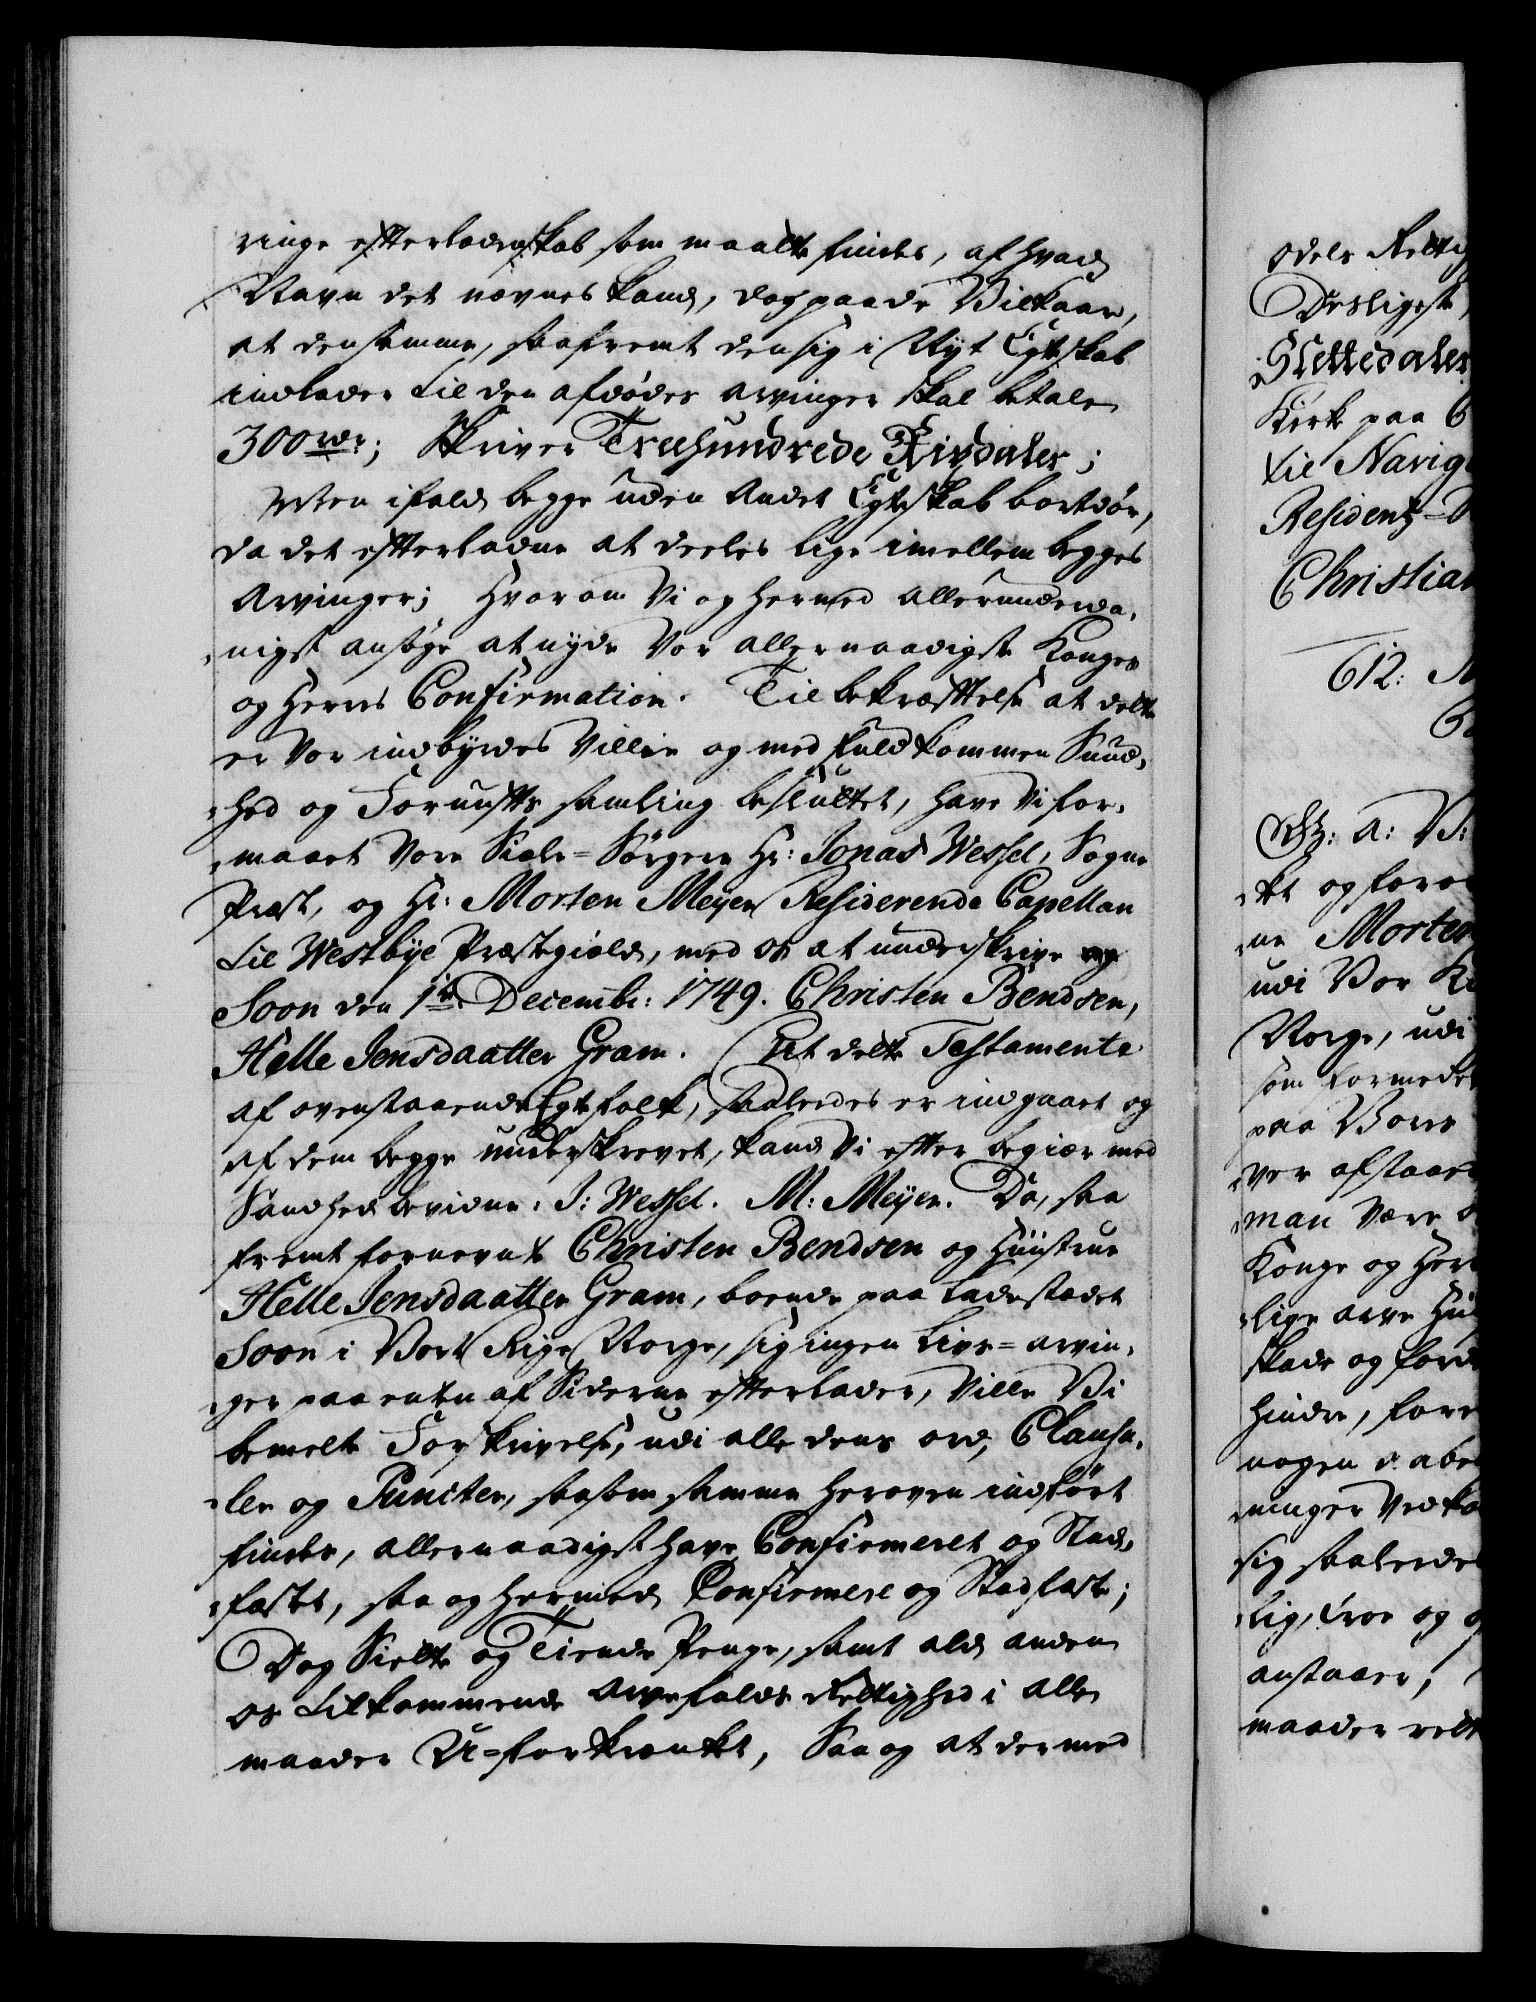 ringe efterladenskab som maatte findes, af hvad
Navn det nævnes kand, dog paa de Vilkaar,
at den samme, saafremt den sig i Nyt Egteskab
indlader til den afdødes arvinger skal betale
300 rdr; Skriver Treehundrede Rixdaler;
Men ifald begge uden Andet Egteskab bortdør,
da det efterladne at deeles lige imellem begges
Arvinger; hvorom Vi og hermed allerunderda-
nigst ansøge at nyde Vor allernaadigste Konges
og Herres Confirmation. Til bekræftelse at dette
er Vor indbyrdes Villie og med fuldkommen Sund-
hed og Fornufts samling besluttet, have Vi for-
maaet Vore Siæle-Sørgere Hr: Jonas Wessel, Sogne
Præst, og Hr: Morten Meyer Residerende Capellan
til Westbye Præstegield, med os at underskrive
Soon den 1te Decembr: 1749. Christen Bendsen,
Helle Jensdaatter Gram. At dette Testamente
af ovenstaaende Egtefolk, saaledes er indgaaet og
af dem begge underskrevet, kand Vi efter begiær med
Sandhed bevidne. J: Wessel. M: Meyer. Da, saa
fremt fornevnte Christen Bendsen og Hüüstrue
Helle Jensdaatter Gram, boende paa Ladestædet
Soon i Vort Rige Norge, sig ingen Livs-arvin-
ger paa enten af Siderne efterlader, Ville Vi
bemelte Forskrivelse, udi alle dens ord, Clausu-
ler og Puncter, saasom samme heroven indført
findes, allernaadigst have Confirmeret og Stad-
fæstet, saa og hermed Confirmere og Stadfæste;
Dog Siette og Tiende Penge, samt ald anden
os tilkommende Arvefalds Rettighed i alle
maader U-forkrænket, Saa og at dermed
odels Rettig
Desligeste
Slettedaler
Kirke paa C
til Navig
Residentz-
Christian
612:
a: V:
et og fore
ne Morten
udi Vor
Norge, udi
som formedel
paa Vores
ver afstaae
man Være
Konge og Her
lige arve
skade og ford
hindre, fore
nogen
ninger Vedk
sig saalede
lig, troe og
anstaaer;
maader rett